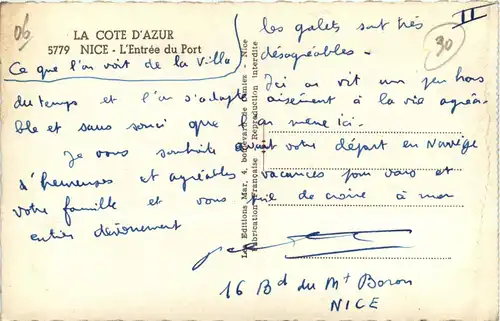 06
II
30
LA COTE D'AZUR
5779 NICE - L'Entrée du Port
Ce que l'on voit de la villa
les galets sont très
désagréables.
Ici on vit un peu hors
du temps et l'on s'adapte aisément à la vie agréa-
ble et sans souci que l'on mène ici.
Je vous souhaite avant votre départ en Norvège
d'heureuses et agréables vacances pour vous et
votre famille et vous prie de croire à mon
entier dévouement
16 Bd du Mt Boron
NICE
Les Editions Mar, 4, boulevard de Cimiez - Nice
Fabrication Française - Reproduction interdite